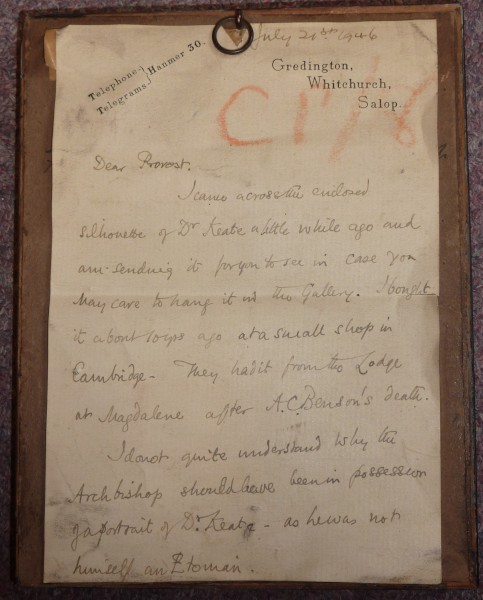 July 21st 1946
Telephone
Telegrams
Hanmer 30.
Gredington,
Whitchurch,
Salop.
Dear Provost.
I came across the enclosed
silhouette of Dr Keate a little while ago and
am sending it for you to see in case you
May care to hang it in the Gallery. I bought
it about 20 yrs ago at a small shop in
Cambridge - They had it from the Lodge
at Magdalene after A.C. Benson's death.
I do not quite understand why the
Archbishop should have been in possession
of a portrait of Dr Keate - as he was not
himself an Etonian.